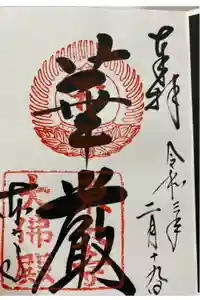 奉拝
令和三年二月十九日
華厳
東大寺
大佛殿